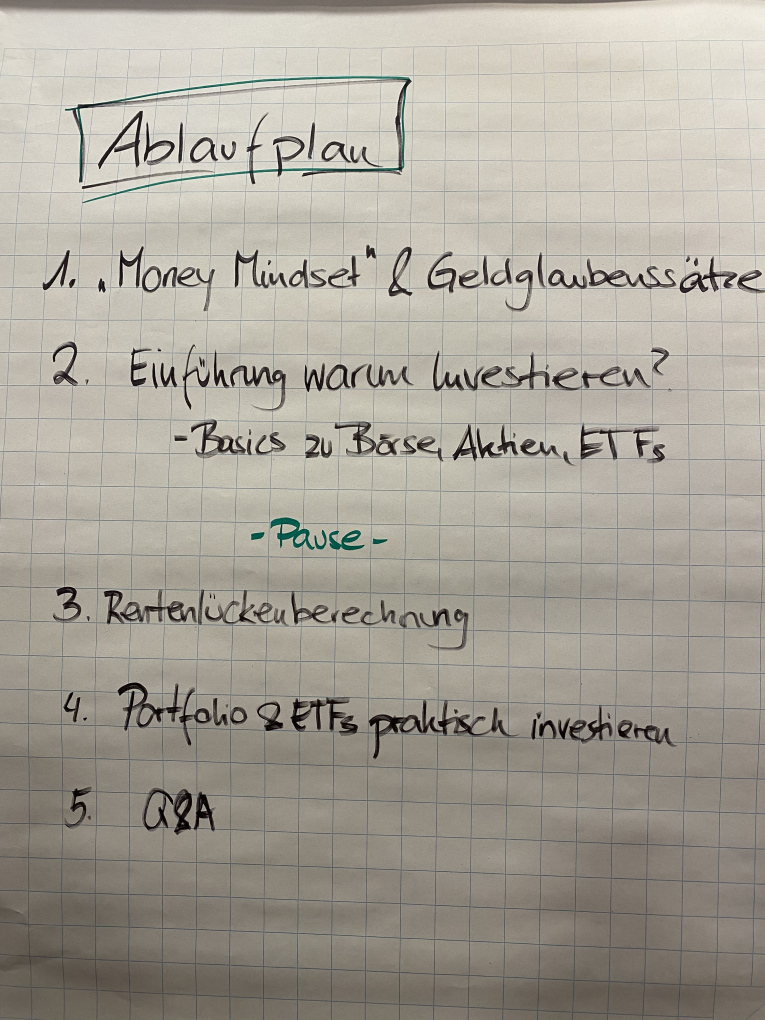 Ablaufplan
1. „Money Mindset" & Geldglaubenssätze
2. Einführung warum Investieren?
- Basics zu Börse, Aktien, ETFs
- Pause -
3. Rentenlückenberechnung
4. Portfolio & ETFs praktisch investieren
5. Q&A